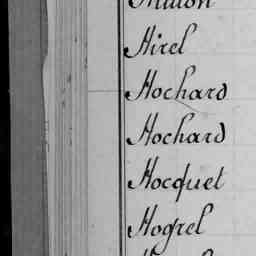 Hirel
Hochard
Hochard
Hocquet
Hogrel